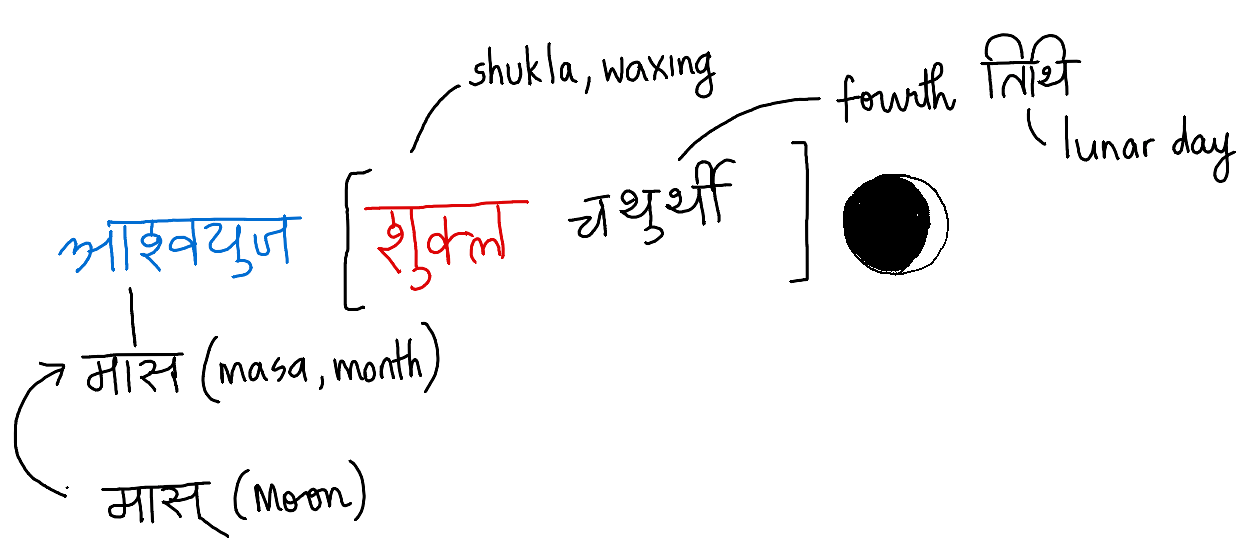 shukla, waxing
fourth तिथि
lunar day
आश्वयुज [शुक्ल चथुर्थी]
मास (masa, month)
मास् (Moon)